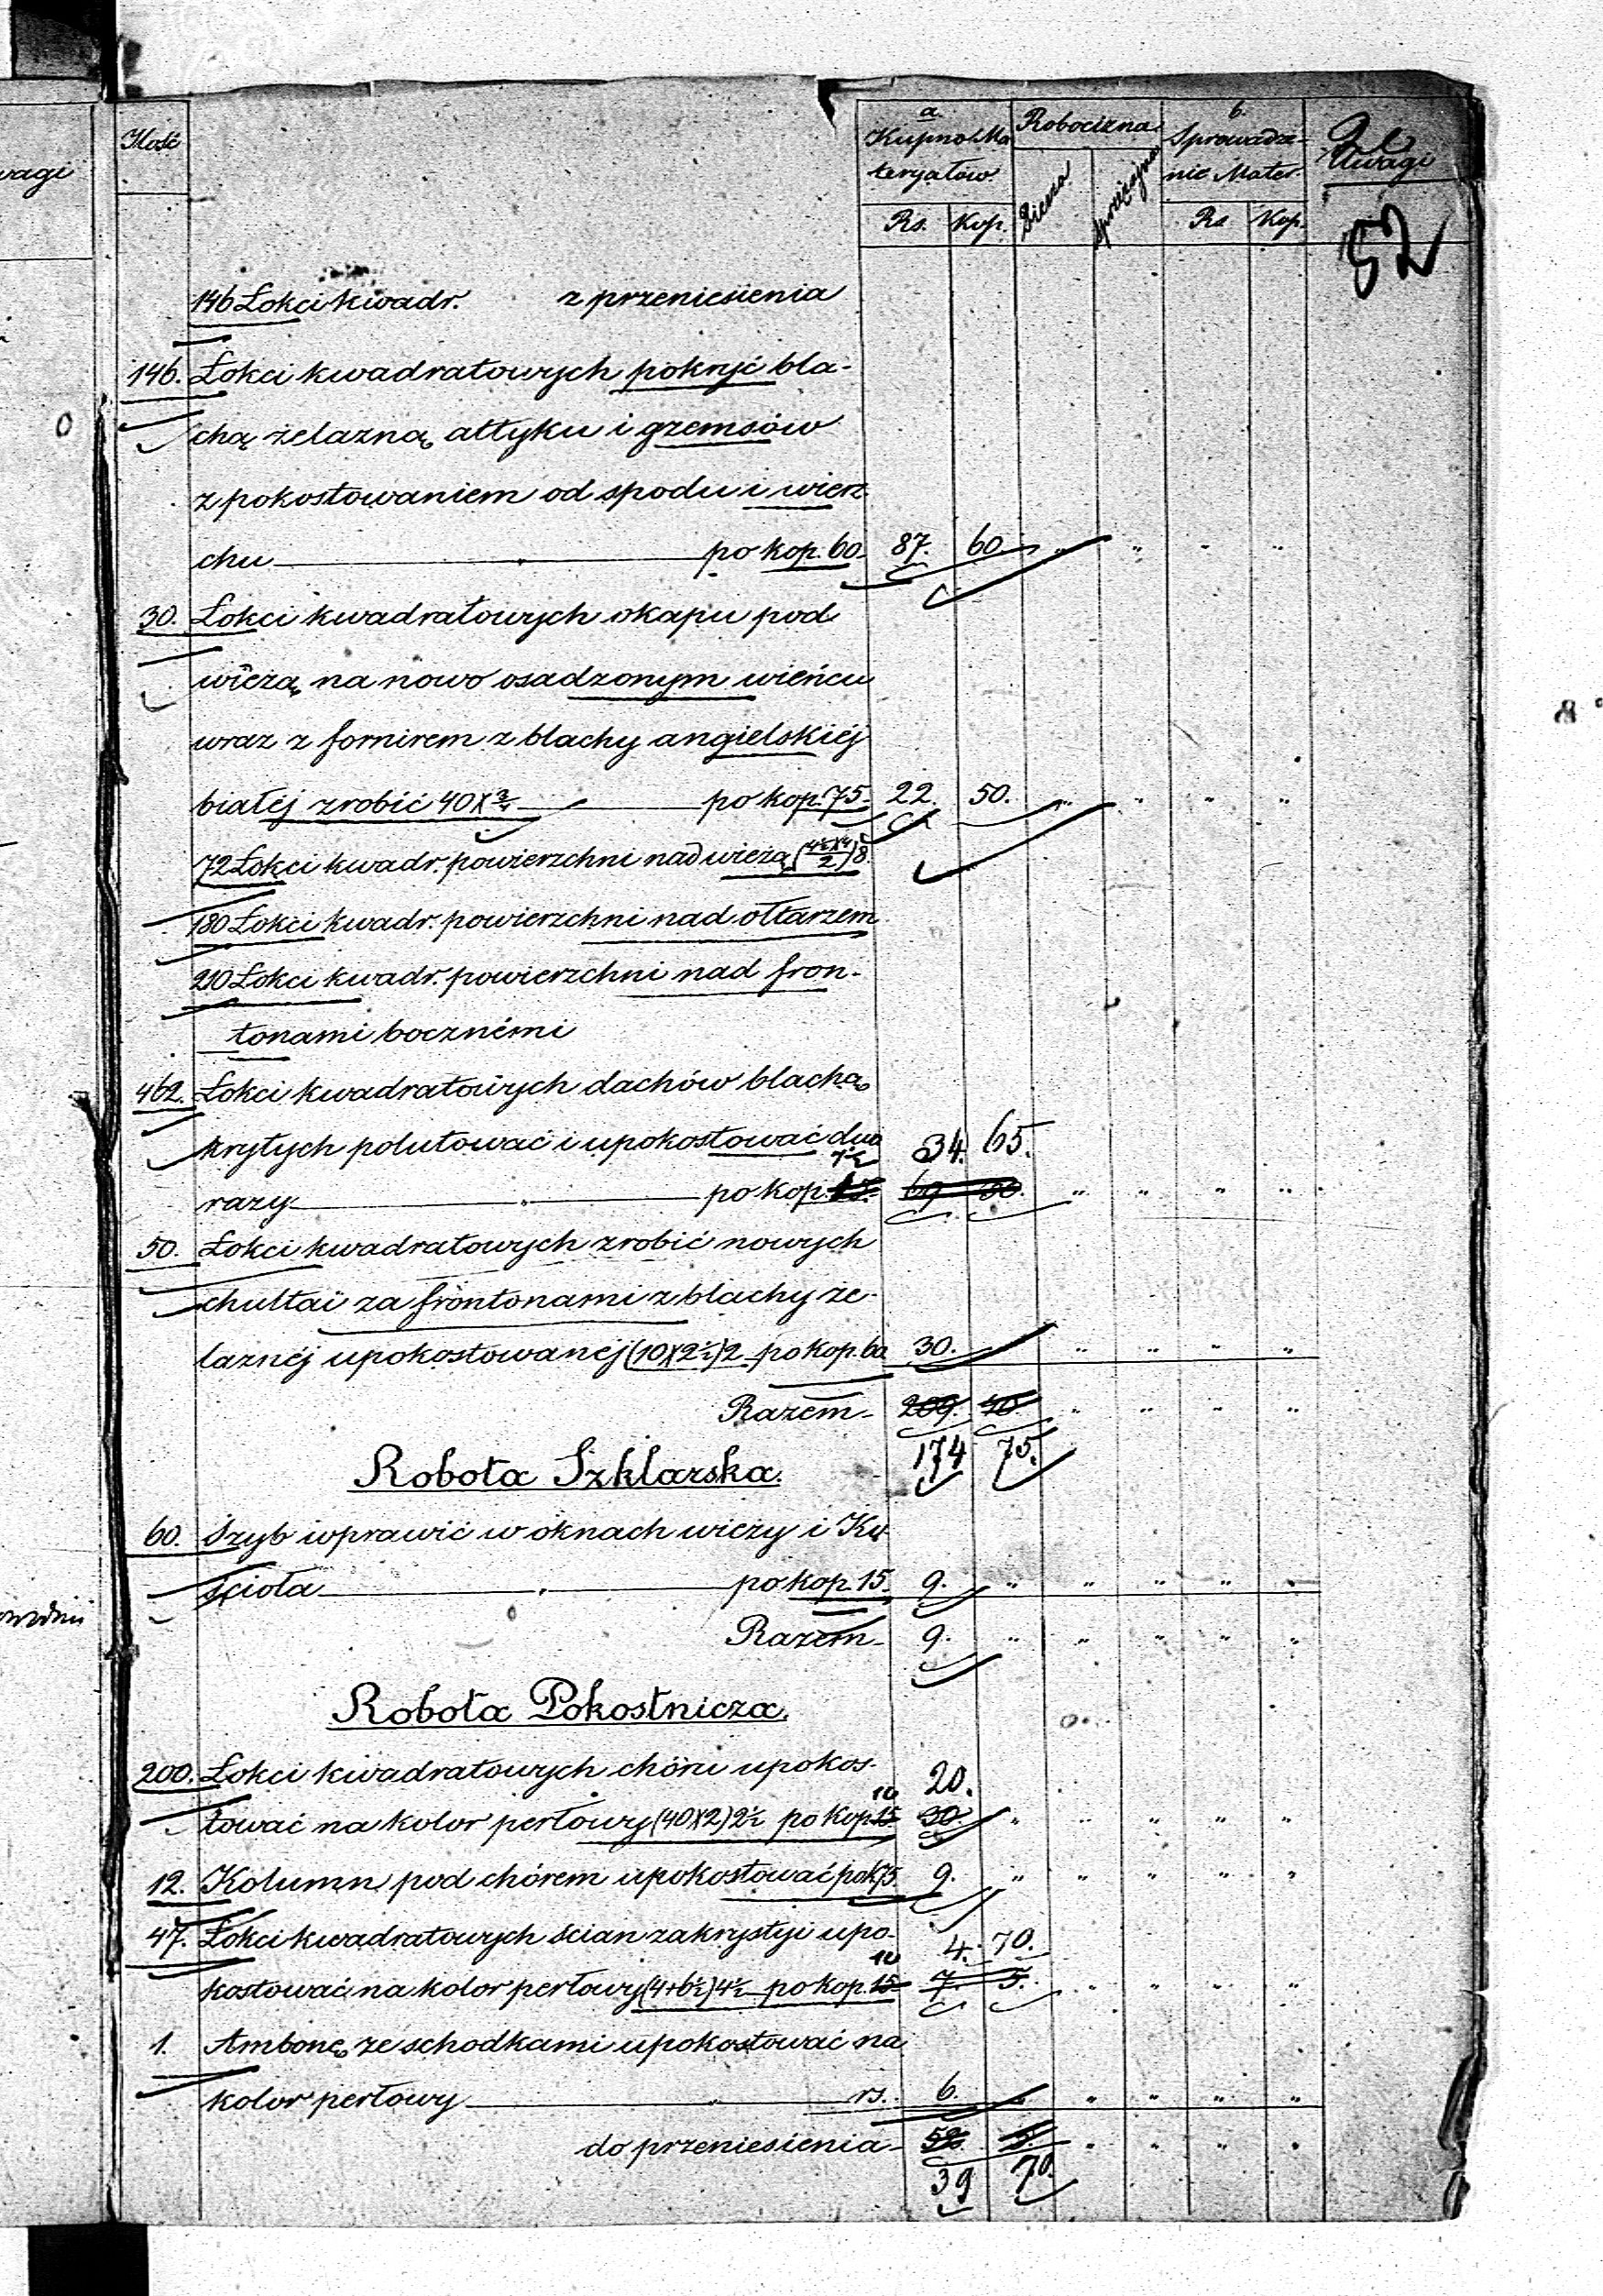 Ilość
a.
Kupno Ma
teryałów.
Rs. Kop.
Robocizna
Piesza
Sprzężajna
b.
Sprowadze-
nie Mater.
Rs Kop.
Uwagi
52
146 Łokci kwadr. z przeniesienia
146. Łokci kwadratowych pokryć bla-
chą żelazną attyku i gzemsów
z pokostowaniem od spodu i wierz
chu po kop. 60. 87. 60. " " " "
30. Łokci kwadratowych okapu pod
wieżą na nowo osadzonym wieńcu
wraz z fornirem z blachy angielskiéj
białéj zrobić 40 X ¾ po kop. 75. 22. 50. " " " "
72 Łokci kwadr. powierzchni nad wieżą (4½X4/2)8.
180 Łokci kwadr. powierzchni nad ołtarzem
210 Łokci kwadr. powierzchni nad fron-
tonami bocznémi
462. Łokci kwadratowych dachów blachą
krytych polutować i upokostować dwa 34. 65.
7½
razy po kop. 15. 69 30. " " " "
50. Łokci kwadratowych zrobić nowych
chultai za frontonami z blachy że-
laznéj upokostowanéj (10X2½)2 po kop. 60 30. " " " "
Razem 209. 40. " " " "
174 75.
Robota Szklarska.
60. Szyb wprawić w oknach wieży i Ko
ścioła po kop. 15. 9. " " " " "
Razem 9. " " " " "
Robota Pokostnicza.
200. Łokci kwadratowych chóru upokos- 20.
10
tować na kolor perłowy (40X2)2½ po kop. 15 30. " " " " "
12. Kolumn pod chórem upokostować po k. 75. 9. " " " " "
47. Łokci kwadratowych ścian zakrystyi upo- 4. 70.
10
kostować na kolor perłowy (4+6½)4½ po kop. 15 7. 5. " " " "
1. Ambonę ze schodkami upokostować na
kolor perłowy rs. 6. " " " " "
do przeniesienia 52. 5. " " " "
39 70.